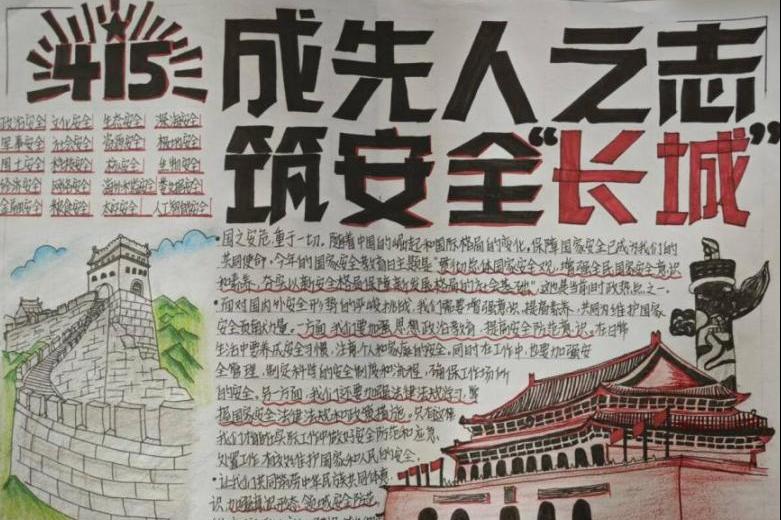 415
成先人之志
筑安全“长城”
政治安全 文化安全 生态安全 深海安全
军事安全 社会安全 资源安全 极地安全
国土安全 科技安全 核安全 生物安全
经济安全 网络安全 海外利益安全 太空安全
金融安全 粮食安全 人工智能安全
•国之安危,重于一切。随着中国的崛起和国际格局的变化,保障国家安全已成为我们的
共同使命,今年的国家安全教育日主题是“贯彻总体国家安全观,增强全民国家安全意识
和素养,夯实以新安全格局保障新发展格局的社会基础”,这也是当前时政热点之一。
•面对国内外安全形势的严峻挑战,我们需要增强意识,提高素养,共同为维护国家
安全贡献力量。一方面,我们要加强思想政治教育,提高安全防范意识,在日常
生活中要养成安全习惯,注意个人和家庭的安全,同时在工作中,也要加强安
全管理,制定科学的安全制度和流程,确保工作场所
的安全。另一方面,我们还要加强法律法规学习,掌
握国家安全法律法规和政策措施。只有这样
我们才能在实际工作中做好安全防范和应急
处置工作,有效地维护国家和人民的安全。
•让我们共同铸牢中华民族共同体意
识,加强意识形态领域安全防范